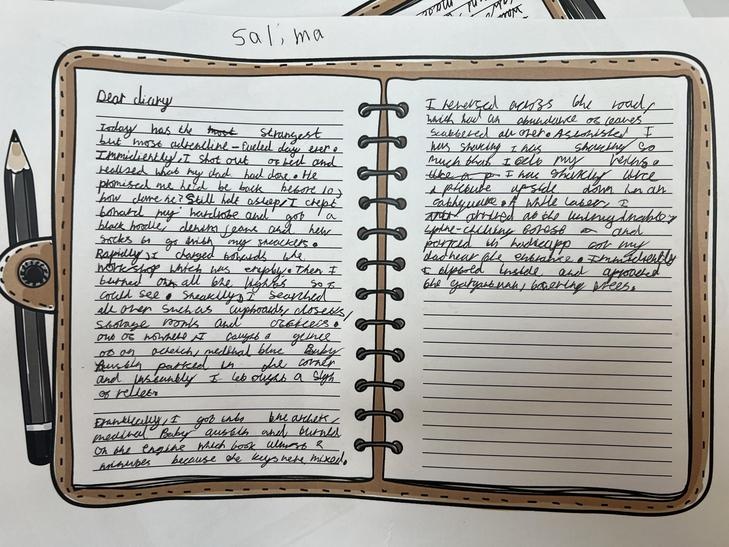 Salima
Dear diary
Today was the strangest
but most adrenaline-fueled day ever.
Immidiently, I shot out of bed and
realised what my dad had done. He
promised me he'd be back before 10,
how dare he? Still hale asleep, I crept
towards my wardrobe and got a
black hoodie, denim jeans and new
socks to go with my sneackers.
Rapidly, I charged towards the
workshop which was empty. Then I
turned on all the lights so I
could see. Sneakily, I searched
all over such as cupboards, closests,
storage rooms and offices.
out of nowhere, I caught a glince
of an acheich, medinal blue Baby
Austin parked in the corner
and instantly I let ought a sigh
of relief.
Frantically, I got into the
medinal Baby austin and turned
on the engine which took almost 2
minutes because the keys were mixed.
I reversed across the road,
which had an abundance of leaves
scattered all over. Astonished I
was shaking I was shaking so
much that I felt my veins.
I was shaking like
a picture upside down in an
eathquake. A while later I
arrived at the
spine-chilling forest and
parked in handicapp for my
dad near the entrance. Immidiently
I tiptoed inside and
the gargantuan, towering trees.